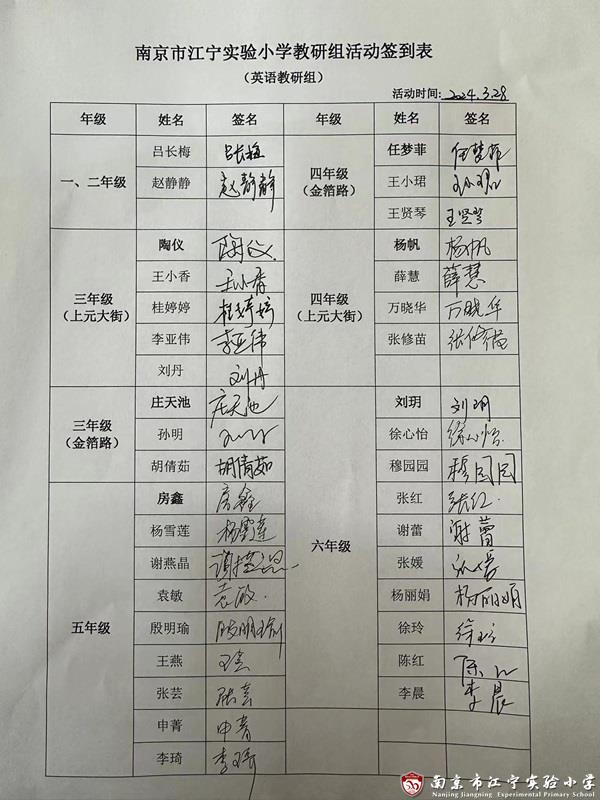 南京市江宁实验小学教研组活动签到表
（英语教研组）
活动时间: 2024.3.28
年级 姓名 签名 年级 姓名 签名
一、二年级
吕长梅 吕长梅
赵静静 赵静静
四年级
(金箔路)
任梦菲 任梦菲
王小珺 王小珺
王贤琴 王贤琴
三年级
(上元大街)
陶仪 陶仪
王小香 王小香
桂婷婷 桂婷婷
李亚伟 李亚伟
刘丹 刘丹
四年级
(上元大街)
杨帆 杨帆
薛慧 薛慧
万晓华 万晓华
张修苗 张修苗
三年级
(金箔路)
庄天池 庄天池
孙明
胡倩茹 胡倩茹
五年级
房鑫 房鑫
杨雪莲 杨雪莲
谢燕晶
袁敏 袁敏
殷明瑜 殷明瑜
王燕 王燕
张芸 张芸
申菁 申菁
李琦 李琦
六年级
刘玥 刘玥
徐心怡 徐心怡
穆园园 穆园园
张红 张红
谢蕾 谢蕾
张媛 张媛
杨丽娟 杨丽娟
徐玲 徐玲
陈红 陈红
李晨 李晨
南京市江宁实验小学
Nanjing Jiangning Experimental Primary School